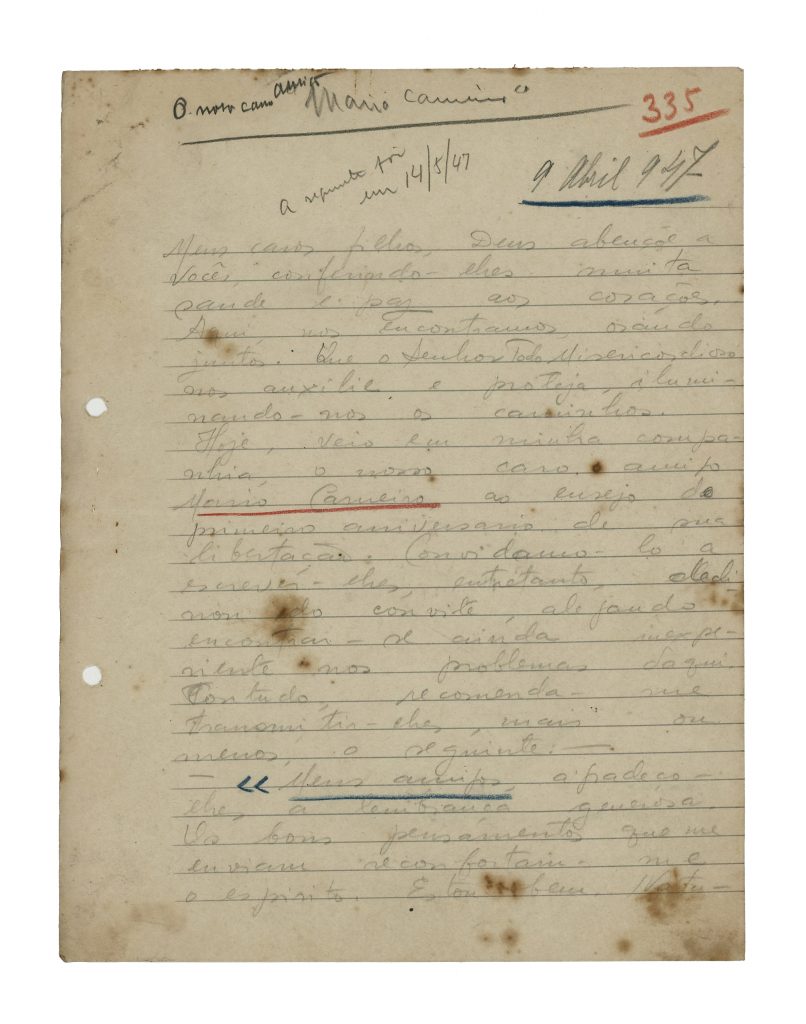 O nosso caro amigo Mario Carneiro"
335
a segunda foi
em 14/5/47
9 Abril 947
Meus caros filhos, Deus abençôe a
Vocês, conferindo-lhes muita
saude e paz aos corações.
Aqui nos encontramos, orando
juntos. Que o Senhor Todo Misericordioso
nos auxilie e proteja, ilumi-
nando-nos os caminhos.
Hoje, veio em minha compa-
nhia, o nosso caro amigo
Mario Carneiro, ao ensejo do
primeiro aniversario de sua
libertação. Convidamo-lo a
escrever-lhes, entretanto, decli
nou do convite, alegando
encontrar-se ainda inexpe-
riente nos problemas daqui.
Contudo, recomenda-me
transmitir-lhes, mais ou
menos, o seguinte: —
— << Meus amigos, agradeço-
lhes, a lembrança generosa.
Os bons pensamentos que me
enviam reconfortam-me
o espirito. Estou bem. Natu-